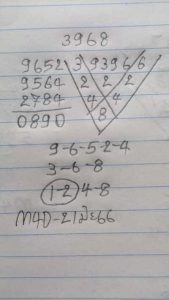 3968
9652 3 9 3 9 6 6
9564 2 2 2
2784 4 4
0890 8
9-6-5-2-4
3-6-8
1-2 4-8